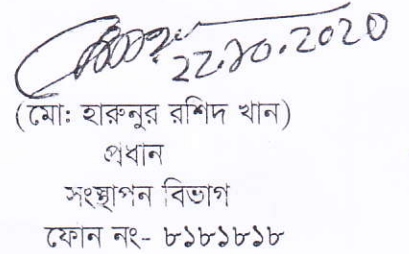 22.10.2020
(মোঃ হারুনুর রশিদ খান)
প্রধান
সংস্থাপন বিভাগ
ফোন নং- ৮১৮১৮১৮